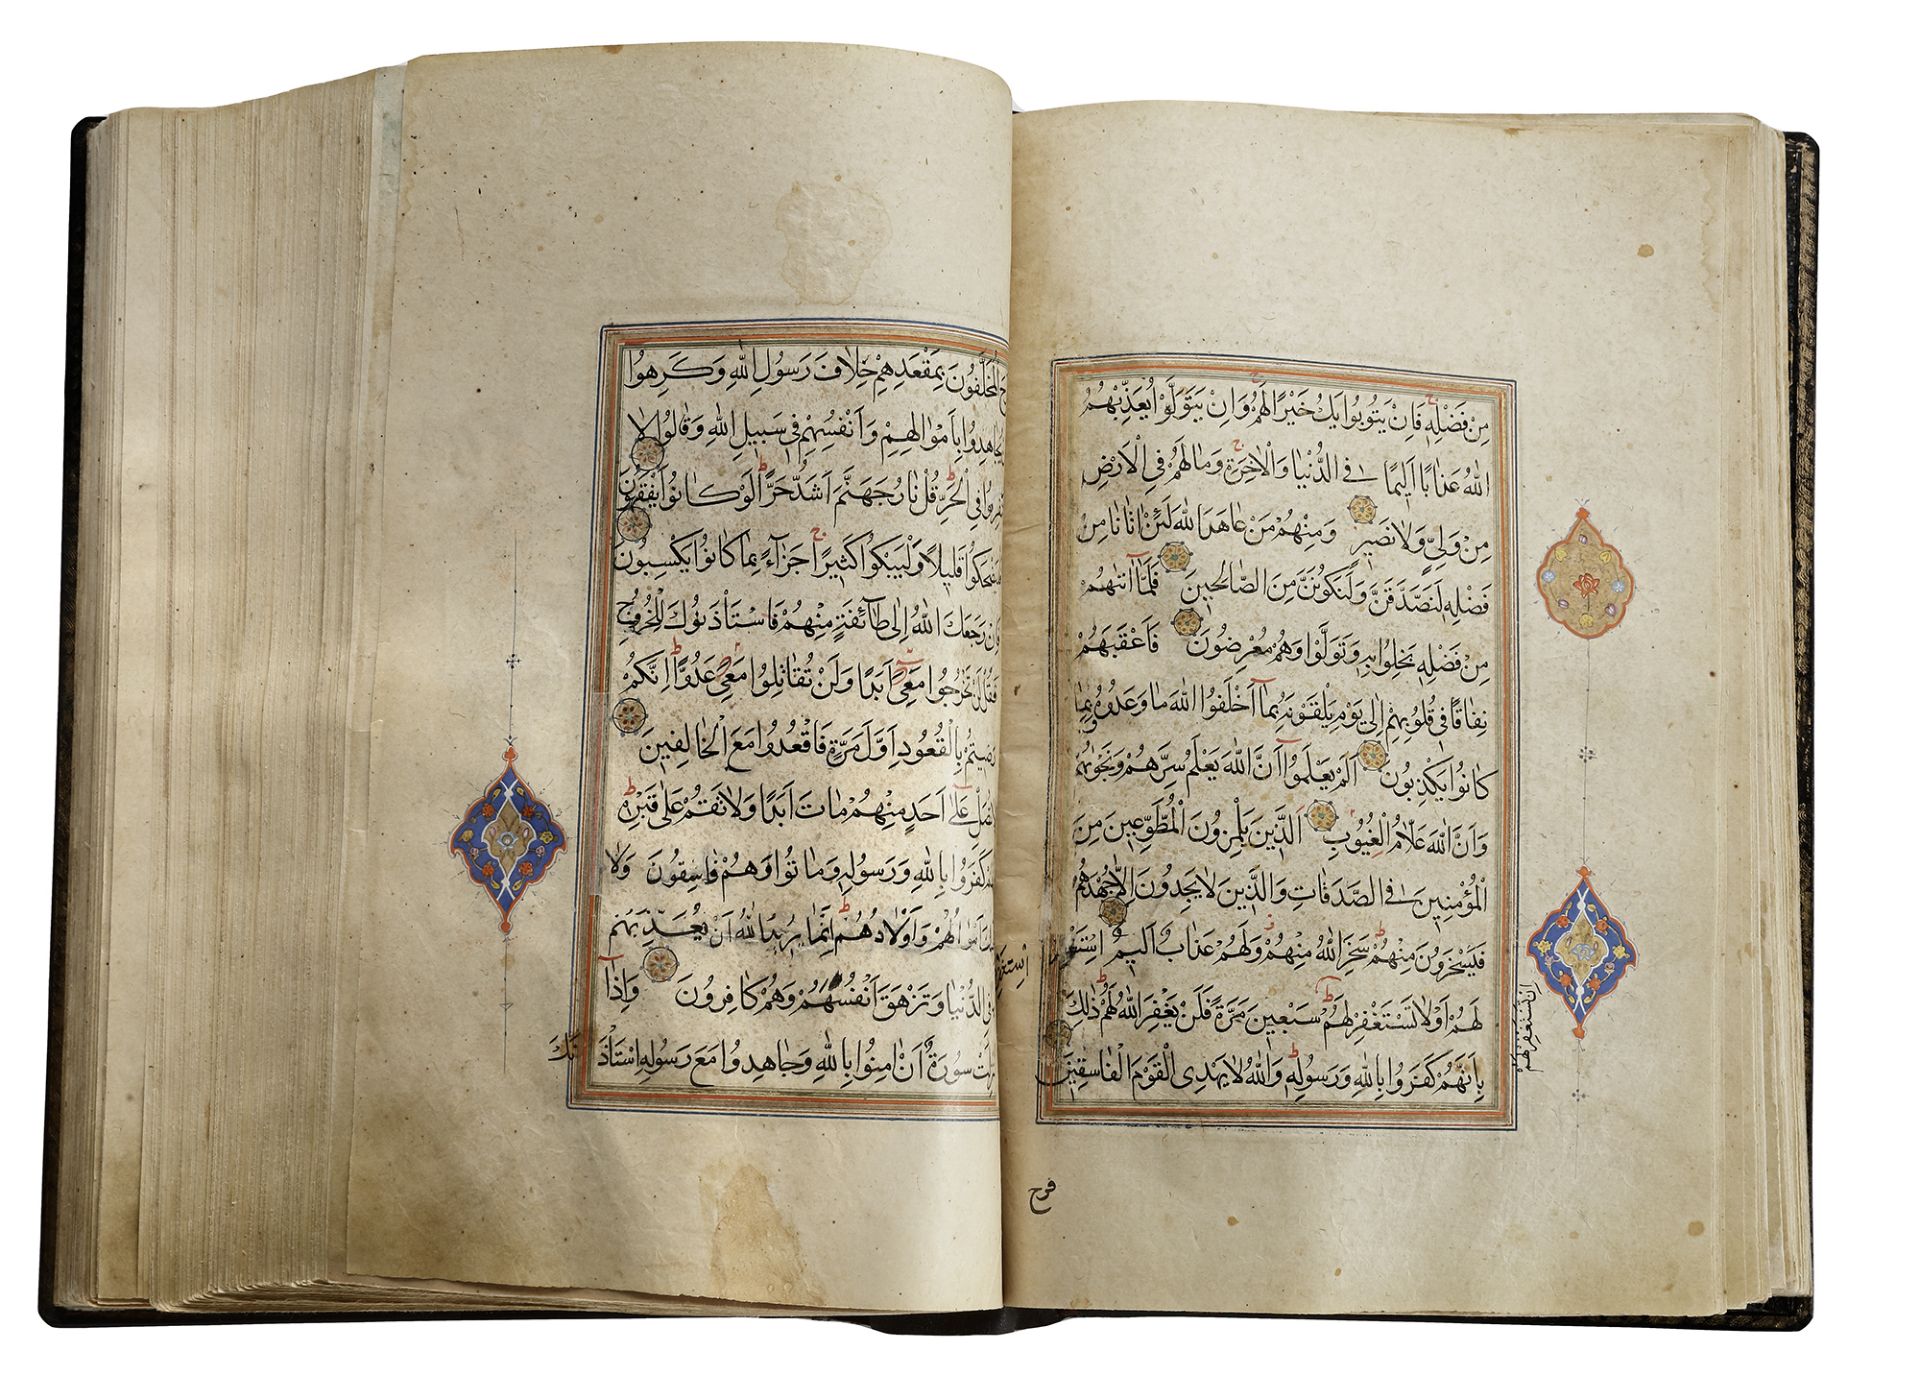 مِنْ فَضْلِهِ فَاِنْ يَتُوبُوا يَكُ خَيْرًا لَهُمْ وَاِنْ يَتَوَلَّوْا يُعَذِّبْهُمُ
اللّٰهُ عَذَابًا اَلِيمًا فِي الدُّنْيَا وَالْاٰخِرَةِ وَمَا لَهُمْ فِي الْاَرْضِ
مِنْ وَلِيٍّ وَلَا نَصِيرٍ وَمِنْهُمْ مَنْ عَاهَدَ اللّٰهَ لَئِنْ اٰتَانَا مِنْ
فَضْلِهِ لَنَصَّدَّقَنَّ وَلَنَكُونَنَّ مِنَ الصَّالِحِينَ فَلَمَّا اٰتٰهُمْ
مِنْ فَضْلِهِ بَخِلُوا بِهِ وَتَوَلَّوْا وَهُمْ مُعْرِضُونَ فَاَعْقَبَهُمْ
نِفَاقًا فِي قُلُوبِهِمْ اِلٰى يَوْمِ يَلْقَوْنَهُ بِمَا اَخْلَفُوا اللّٰهَ مَا وَعَدُوهُ وَبِمَا
كَانُوا يَكْذِبُونَ اَلَمْ يَعْلَمُوا اَنَّ اللّٰهَ يَعْلَمُ سِرَّهُمْ وَنَجْوٰيهُمْ
وَاَنَّ اللّٰهَ عَلَّامُ الْغُيُوبِ اَلَّذِينَ يَلْمِزُونَ الْمُطَّوِّعِينَ مِنَ
الْمُؤْمِنِينَ فِي الصَّدَقَاتِ وَالَّذِينَ لَا يَجِدُونَ اِلَّا جُهْدَهُمْ
فَيَسْخَرُونَ مِنْهُمْ سَخِرَ اللّٰهُ مِنْهُمْ وَلَهُمْ عَذَابٌ اَلِيمٌ اِسْتَغْفِرْ
لَهُمْ اَوْ لَا تَسْتَغْفِرْ لَهُمْ سَبْعِينَ مَرَّةً فَلَنْ يَغْفِرَ اللّٰهُ لَهُمْ ذٰلِكَ
بِاَنَّهُمْ كَفَرُوا بِاللّٰهِ وَرَسُولِهِ وَاللّٰهُ لَا يَهْدِي الْقَوْمَ الْفَاسِقِينَ
اِنْ تَسْتَغْفِرْ لَهُمْ
فرح
الْمُخَلَّفُونَ بِمَقْعَدِهِمْ خِلَافَ رَسُولِ اللّٰهِ وَكَرِهُوا
يُجَاهِدُوا بِاَمْوَالِهِمْ وَاَنْفُسِهِمْ فِي سَبِيلِ اللّٰهِ وَقَالُوا لَا
تَنْفِرُوا فِي الْحَرِّ قُلْ نَارُ جَهَنَّمَ اَشَدُّ حَرًّا لَوْ كَانُوا يَفْقَهُونَ
قَلِيلًا وَلْيَبْكُوا كَثِيرًا جَزَاءً بِمَا كَانُوا يَكْسِبُونَ
رَجَعَكَ اللّٰهُ اِلٰى طَائِفَةٍ مِنْهُمْ فَاسْتَأْذَنُوكَ لِلْخُرُوجِ
فَقُلْ لَنْ تَخْرُجُوا مَعِيَ اَبَدًا وَلَنْ تُقَاتِلُوا مَعِيَ عَدُوًّا اِنَّكُمْ
رَضِيتُمْ بِالْقُعُودِ اَوَّلَ مَرَّةٍ فَاقْعُدُوا مَعَ الْخَالِفِينَ
تُصَلِّ عَلٰى اَحَدٍ مِنْهُمْ مَاتَ اَبَدًا وَلَا تَقُمْ عَلٰى قَبْرِهِ
كَفَرُوا بِاللّٰهِ وَرَسُولِهِ وَمَاتُوا وَهُمْ فَاسِقُونَ وَلَا
اَمْوَالُهُمْ وَاَوْلَادُهُمْ اِنَّمَا يُرِيدُ اللّٰهُ اَنْ يُعَذِّبَهُمْ
فِي الدُّنْيَا وَتَزْهَقَ اَنْفُسُهُمْ وَهُمْ كَافِرُونَ وَاِذَا
اُنْزِلَتْ سُورَةٌ اَنْ اٰمِنُوا بِاللّٰهِ وَجَاهِدُوا مَعَ رَسُولِهِ اسْتَأْذَنَكَ